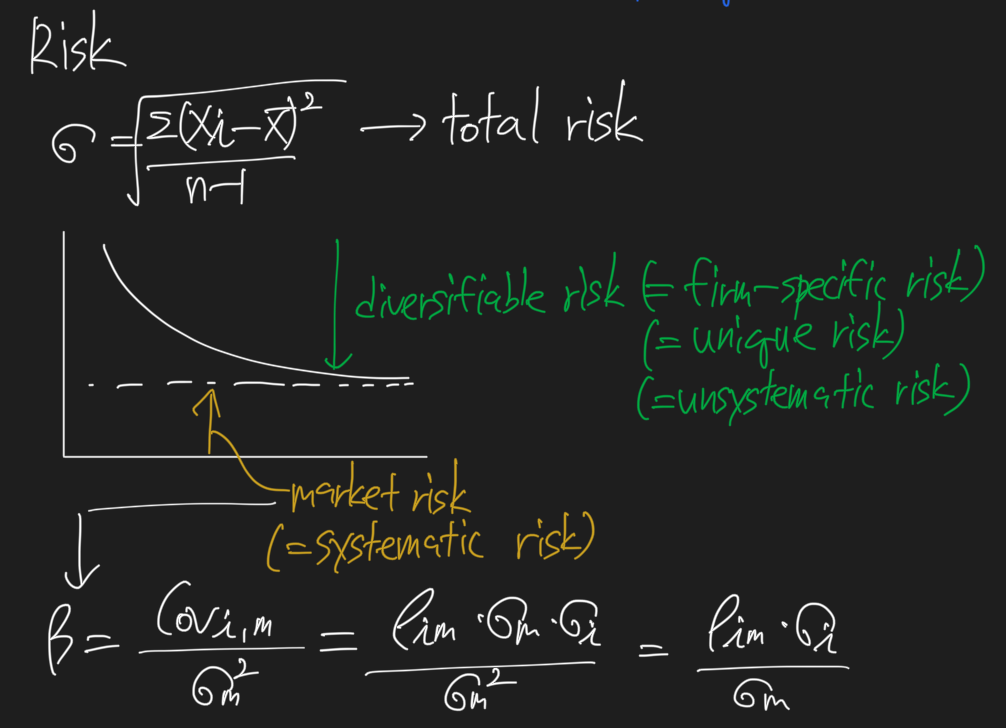 Risk
σ = √(Σ(Xi−X̄)²/(n−1)) → total risk
diversifiable risk (= firm-specific risk)
(= unique risk)
(=unsystematic risk)
market risk
(=systematic risk)
β = Covi,m/σm² = ρim·σm·σi/σm² = ρim·σi/σm